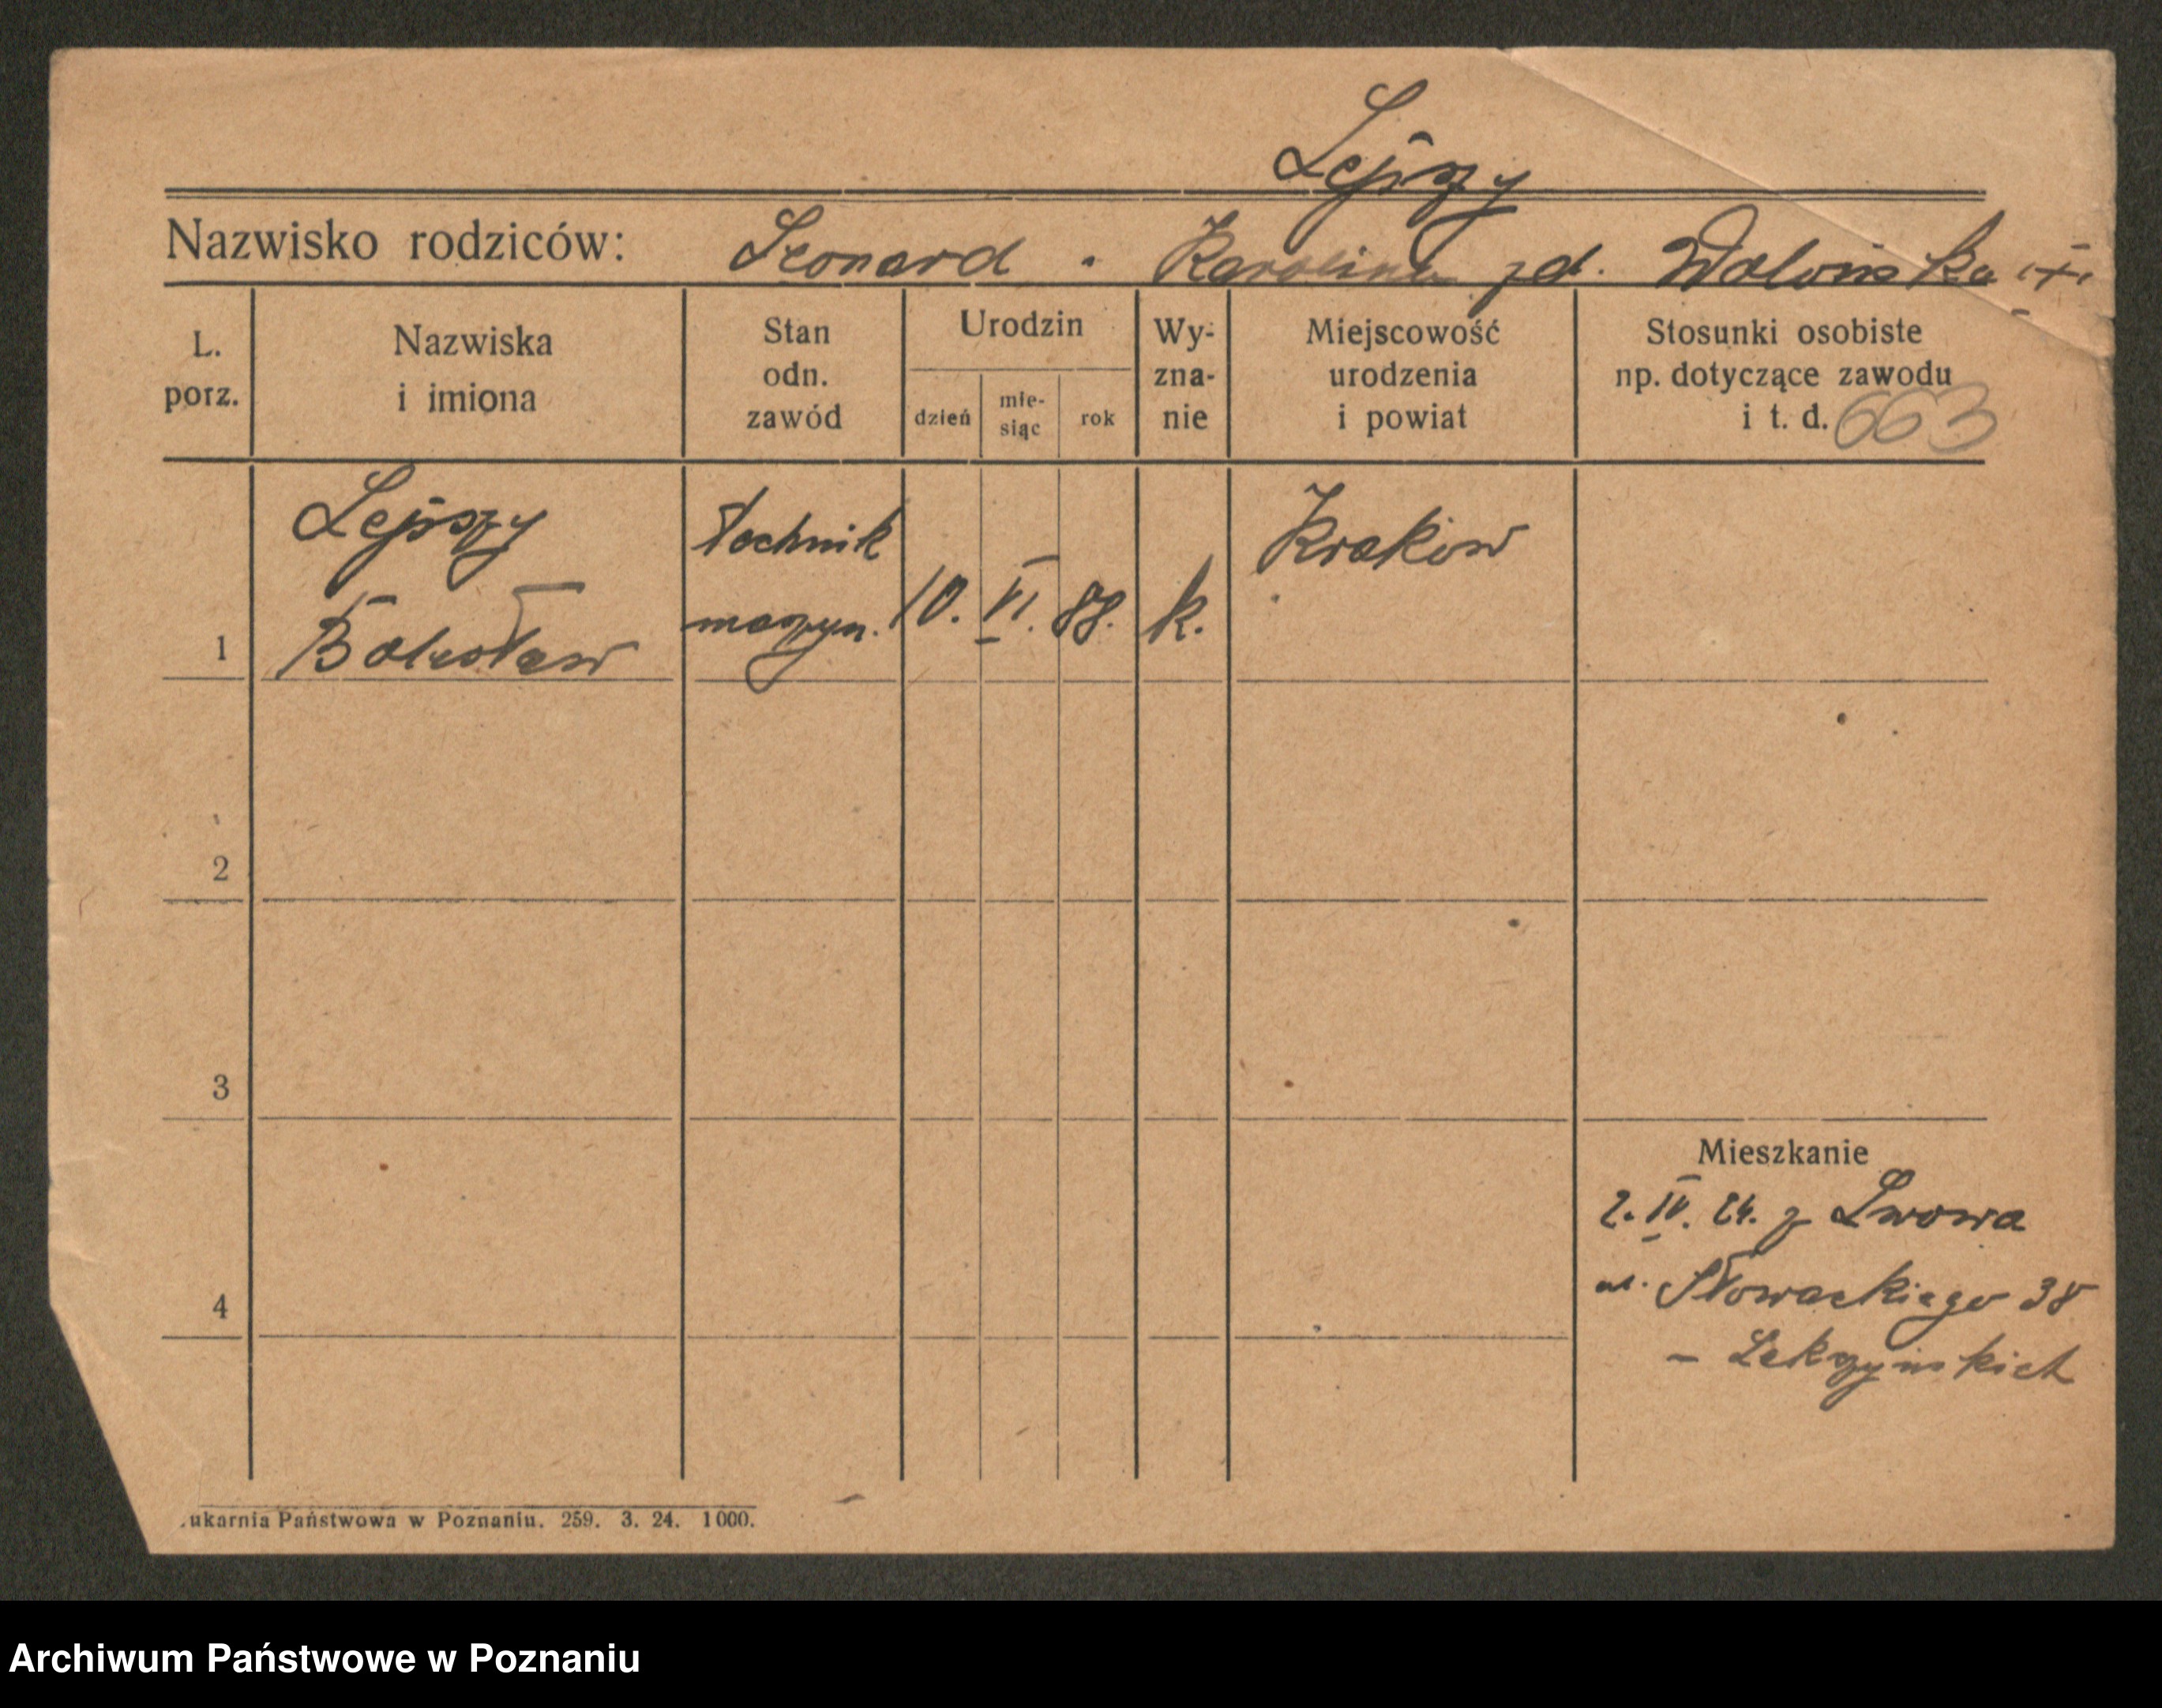 Lepszy
Nazwisko rodziców: Leonard . Karolina zd. Wolińska
L. porz.
Nazwiska i imiona
Stan odn. zawód
Urodzin
dzień
mie-siąc
rok
Wy-zna-nie
Miejscowość urodzenia i powiat
Stosunki osobiste
np. dotyczące zawodu
i t. d. 663
1
Lepszy
Bolesław
technik
maszyn.
10. VI. 88.
k.
Kraków
2
3
4
Mieszkanie
2. IV. 24. z Lwowa
ul. Słowackiego 38
– Lekszyńskich
ukarnia Państwowa w Poznaniu. 259. 3. 24. 1000.
Archiwum Państwowe w Poznaniu